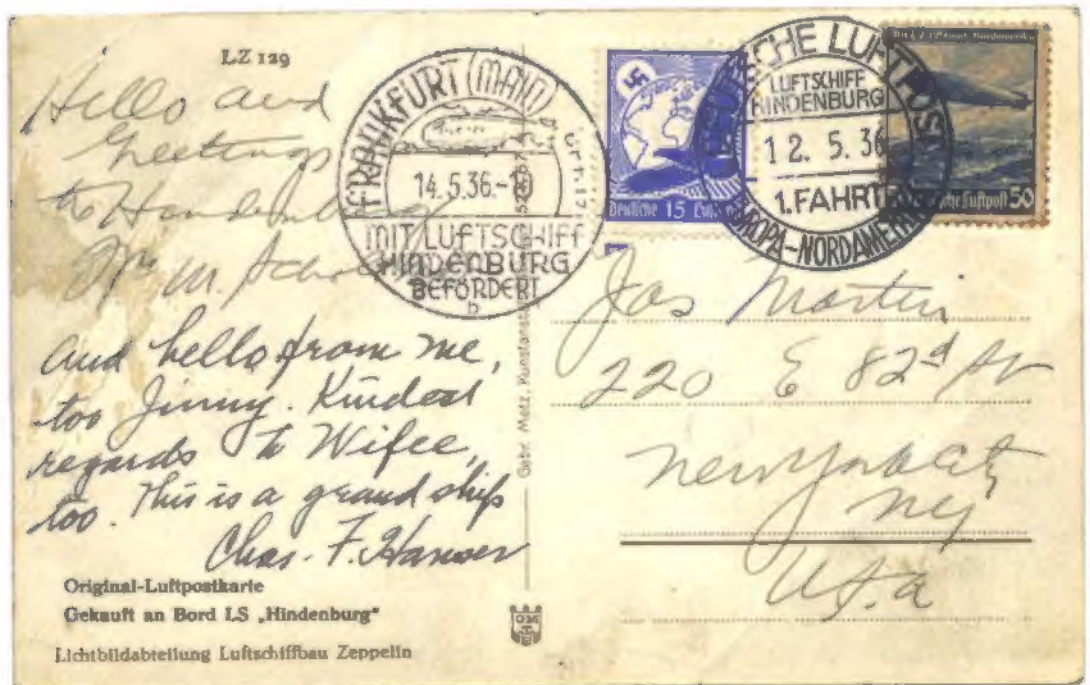 LZ 129
Hello and
Greetings
to Hindenburg
Wm M.
and hello from me,
too Jimmy. Kindest
regards to Wifee,
too. This is a grand ship
Chas. F. Hanser
Original-Luftpostkarte
Gekauft an Bord LS „Hindenburg"
Lichtbildabteilung Luftschiffbau Zeppelin
FRANKFURT (MAIN)
14.5.36.-
MIT LUFTSCHIFF
HINDENBURG
BEFÖRDERT
b
Gebr. Metz, Kunstanst
Deutsche 15
DEUTSCHE LUFTPOST
LUFTSCHIFF
HINDENBURG
12. 5. 36
1. FAHRT
EUROPA-NORDAMERIKA
Luftpost 50
Jas Martin
220 E 82d
New York City
NY
U.S.a